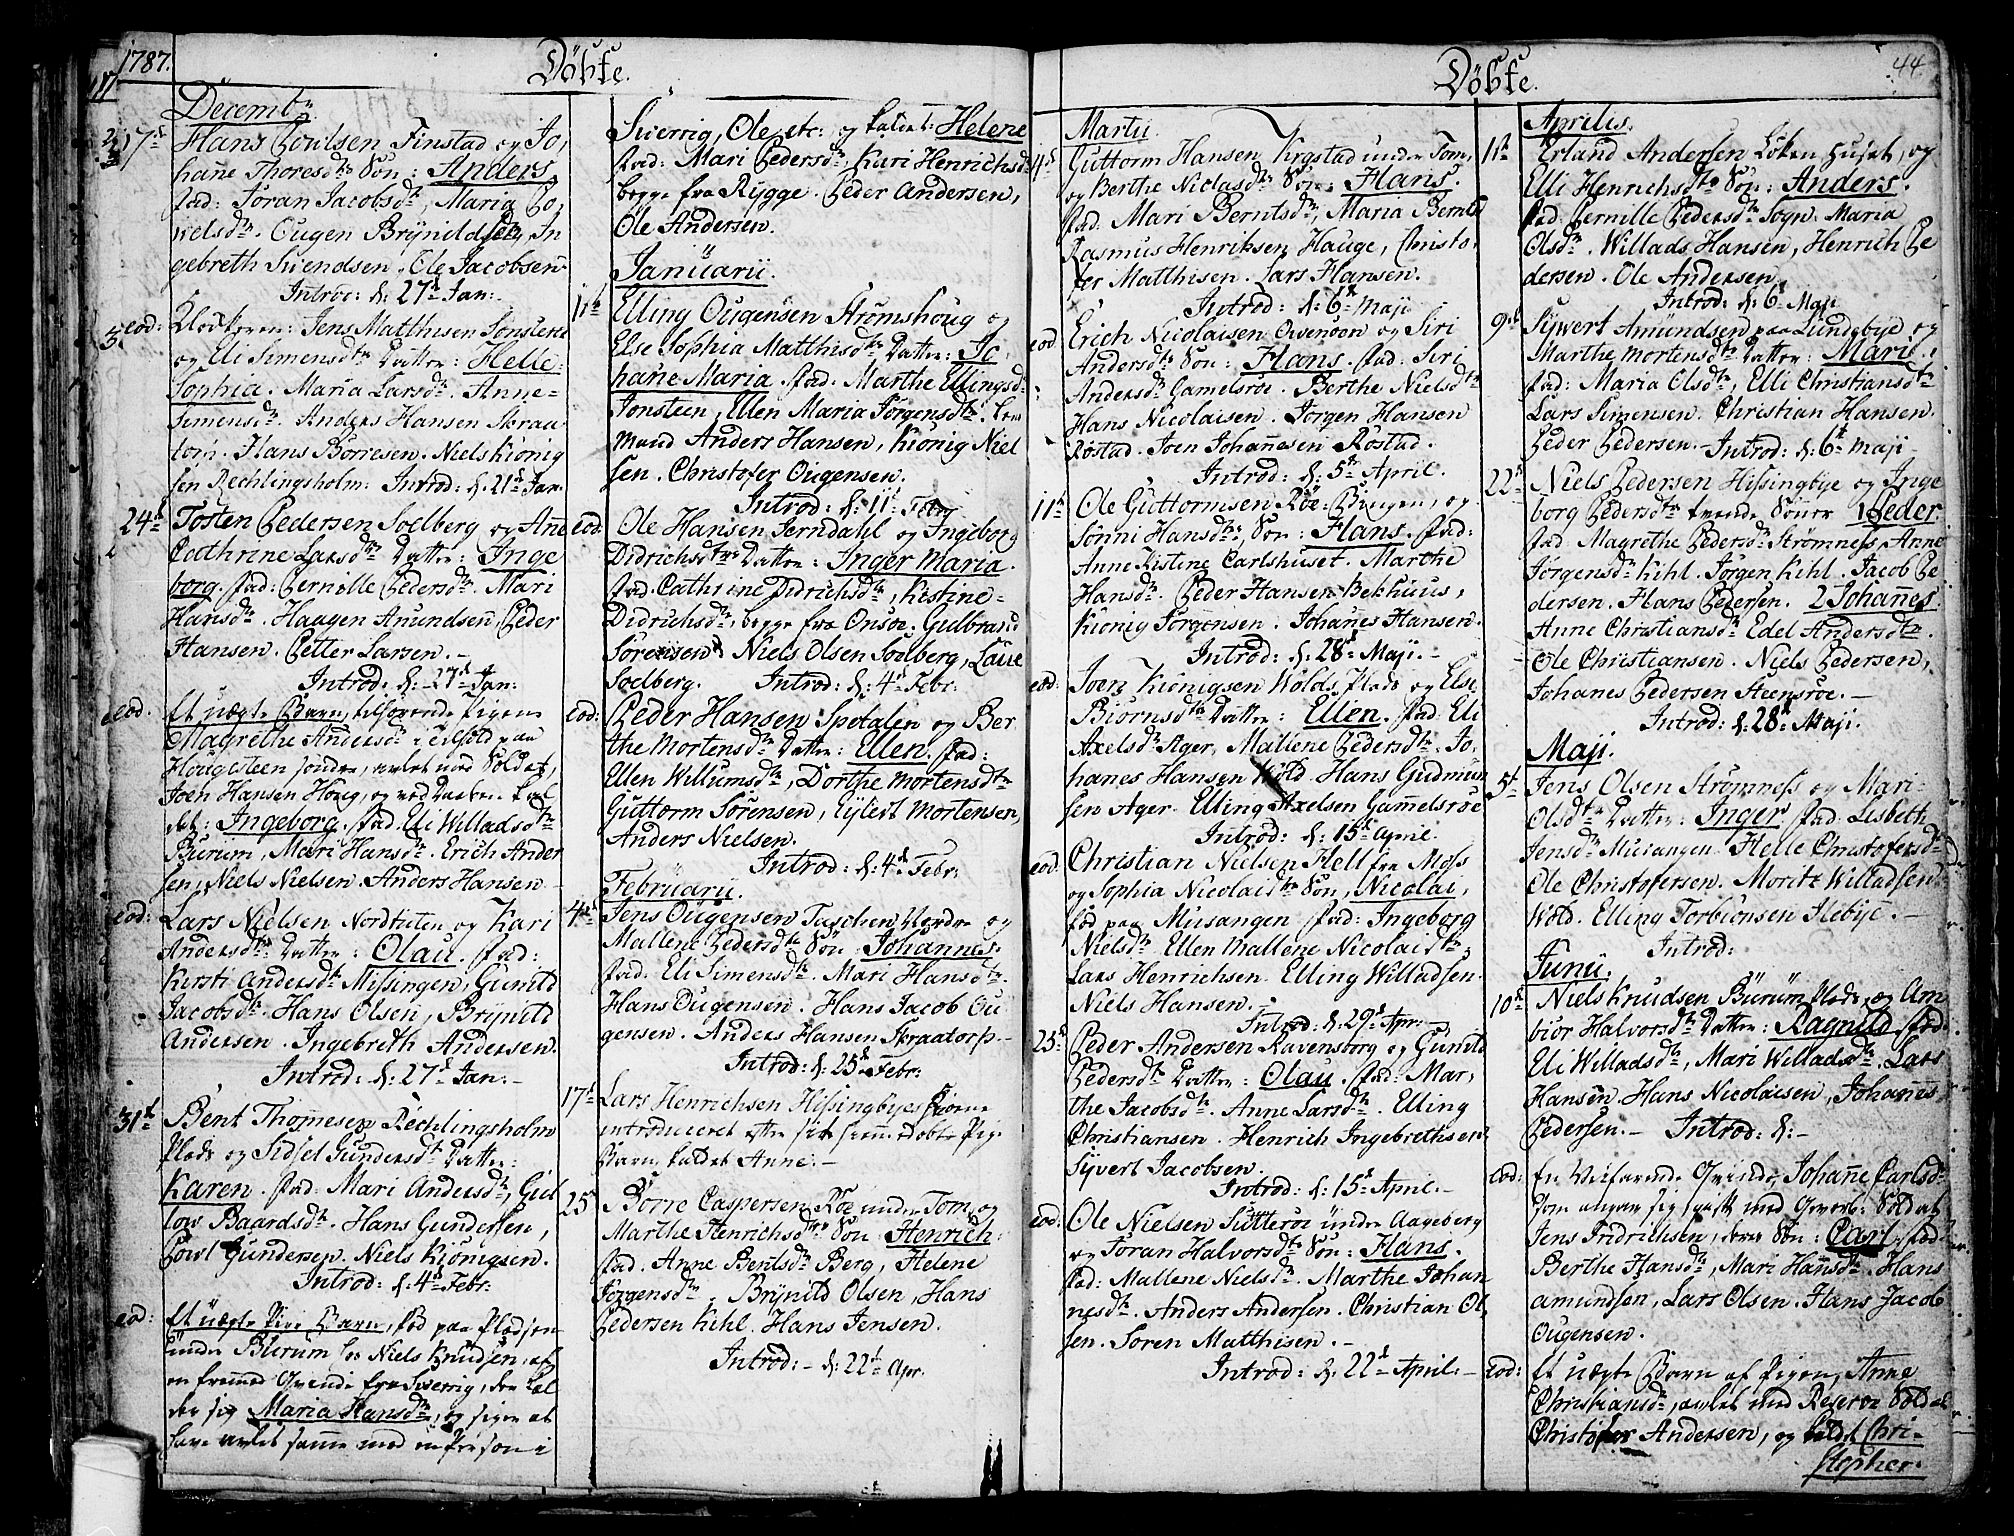 1787.
Döbte.
Decembr
17de
Hans Poulsen Finstad og Jo,
hañe Thoresdtr Søn: Anders.
fad: Joran Jacobsdtr, Maria Po,
welsdtr. Ougen Brÿnildsen, In
gebreth Svendsen. Ole Jacobsen
Introd: d: 27de Jan:
eod:
Klockeren: Jens Matthisen Sonsterö
og Eli Simensdtr Datter: Helle
Sophia. Maria Larsdtr. Anne
Simensdr. Anders Hansen Skraa
torp. Hans Börresen. Niels Kiönig
sen Rechlingsholm: Introd: d. 21de Jan.
24de
Tosten Pedersen Soelberg og Añe
Cathrine Larsdtr Datter: Inge
borg. fad: Pernille Pedersdtr. Mari
Hansdr. Haagen Anundsen, Peder
Hansen. Petter Larsen.
Introd: d: 27de Jan:
eod.
Et uægte Barn, tilhørende Pigen
Magrethe Andersdtr i tilhold paa
Hougesteen søndre, avlet med Soldat,
Joen Hansen Houg, og ved Daaben kal
det: Ingeborg. fad. Eli Willadsdtr
Burum, Mari Hansdtr. Erich Ander
sen, Niels Nielsen. Anders Hansen.
eod:
Lars Nielsen Nordtuten og Kari
Andersdtr Datter: Olau. fad:
Kirsti Andersdtr Missingen, Gunild
Jacobsdtr. Hans Olsen, Brÿnild
Andersen. Ingebreth Andersen.
Introd: d: 27de Jan:
31te
Bent Thommesen Rechlingsholm
Plads og Sidsel Gundersdtr Datter:
Karen. fad: Mari Andersdtr, Gul
low Baardsdtr. Hans Gundersen,
Powl Gundersen. Niels Kiönigsen.
Introd: d: 4de Febr:
eod:
Et uægte Pige Barn, fød paa Pladsen
under Burum hos Niels Knudsen, af
en fremmed Qvinde fra Sverrig, der kal
der sig Maria Hansdtr, og siger at
have avlet samme med en Person i
Sverrig, Ole etc: og kaldet: Helene
fad: Mari Pedersdtr, Kari Henrichsdr
begge fra Rygge. Peder Andersen,
Ole Andersen.
Januarii.
11te
Elling Ougensen Strömshoug og
Else Sophia Matthisdtr Datter: Jo
hañe Maria. fad: Marthe Ellingsd
Jonsteen, Ellen Maria Jörgensdtr. Lens
mand Anders Hansen, Kiönig Niel
sen. Christofer Ougensen.
Introd: d: 11te Febr
eod:
Ole Hansen Jerndahl og Ingeborg
Didrichsdtr Datter: Inger Maria.
fad. Cathrine Didrichsdtr, Kistine
Didrichsdtr, begge fra Onsöe. Gulbrand
Sörensen Niels Olsen Soelberg, Laue
Soelberg. Introd: d: 4de Febr:
eod:
Peder Hansen Spetalen og Ber
the Mortensdtr Datter: Ellen. fad:
Ellen Willumsdtr, Dorthe Mortensdtr
Guttorm Sörensen, Eylert Mortensen,
Anders Nielsen.
Introd: d: 4de Febr:
Februarii.
4de
Jens Ougensen Taschen Nordre og
Mallene Pedersdtr Søn: Johannes.
fad. Eli Simensdtr. Mari Hansdtr.
Hans Ougensen. Hans Jacob Ou
gensen. Anders Hansen Skraatorp.
Introd: d: 25de Febr:
17de
Lars Henrichsen Hissingbyes
introduceret efter sit hjemmedøbte Pige
Barn kaldet Anne.
25
Börre Caspersen Röe under Tom, og
Marthe Henrichsdtr Søn: Henrich.
fad. Anne Bentsdtr Berg, Helene
Jörgensdtr. Brÿnild Olsen, Hans
Pedersen Kihl. Hans Jensen.
Introd: d: 22de Apr.
44
Döbte.
Martii.
4de
Guttorm Hansen Krogstad under Tom,
og Berthe Niclasdtr Søn: Hans.
fad. Mari Berntsdtr, Maria Berntsd
Rasmus Henriksen Hauge, Christo
fer Matthisen. Lars Hansen.
Introd: d: 6te Maji
eod
Erich Nicolaisen Ovenöen og Siri
Andersdtr Søn: Hans. fad: Siri
Andersdtr Gamelsröe. Berthe Nielsdtr
Hans Nicolaisen. Jörgen Hansen
Rostad. Joen Johañesen Rostad.
Introd: d: 5te April.
11te
Ole Guttormsen Röe Böugen, og
Sönni Hansdtr, Søn: Hans. fad:
Anne Kistine Carlshuset. Marthe
Hansdtr. Peder Hansen Bekhuus,
Kiönig Jörgensen. Johañes Hansen.
Introd: d: 28de Maji.
eod:
Joen Kiönigsen Wolds Plads og Else
Biörnsdtr Datter: Ellen. fad: Eli
Axelsdtr Ager, Mallene Pedersdtr. Jo
hanes Hansen Wold. Hans Gudmun
sen Ager. Elling Axelsen Gammelsröe
Introd: d: 15de April.
eod.
Christian Nielsen Hell fra Moss
og Sophia Nicolaidtr Søn, Nicolai,
fød paa Musangen fad: Ingeborg
Nielsdtr. Ellen Mallene Nicolaisdtr.
Lars Henrichsen. Elling Willadsen.
Niels Hansen.
Introd: d: 29de Apr:
25de
Peder Andersen Ravensborg og Gunild
Pedersdtr Datter: Olau. fad: Mar,
the Jacobsdtr. Anne Larsdtr. Elling
Christiansen. Henrich Ingebrethsen
Syvert Jacobsen.
Introd: d: 15de April.
eod:
Ole Nielsen Sutteröe under Aageberg
og Joran Halvorsdtr Søn: Hans.
fad: Mallene Nielsdtr. Marthe Johan
nesdtr. Anders Andersen. Christian Ol,
sen. Soren Matthisen.
Introd: d. 22de April:
Aprilis.
11te
Erland Andersen Löken huset, og
Elli Henrichsdtr Søn: Anders.
fad: Pernille Pedersdtr Sogn. Maria
Olsdtr. Willads Hansen, Henrich Pe
dersen. Ole Andersen
Introd: d: 6te Maji
9de
Sywert Amundsen paa Lundebye og
Marthe Mortensdtr Datter: Mari.
fad: Maria Olsdtr, Elli Christiansdtr
Lars Simensen. Christian Hansen.
Peder Pedersen. Introd: d: 6te Maji
22de
Niels Pedersen Hissingbye og Inge
borg Pedersdtr tvende Sönner 1 Peder.
fad: Magrethe Pedersdtr Strömness, Anne
Jörgensdtr Kihl. Jörgen Kihl. Jacob Pe
dersen. Hans Pedersen. 2 Johanes.
Anne Christiansdtr Edel Andersdtr.
Ole Christiansen. Niels Pedersen,
Johanes Pedersen Steensröe.
Introd: d: 28de Maji.
Maji.
5te
Jens Olsen Strömness og Mari
Olsdtr Datter: Inger fad: Lisbeth
Jensdtr Musangen. Helle Christofersdtr
Ole Christofersen. Moritz Willadsen
Wold. Elling Torbiönsen Ilebye.
Introd:
Junii.
10de
Niels Knudsen Burum Plads, og Am
biör Halvorsdtr Datter: Ragnild fad:
Eli Willadsdtr, Mari Willadsdtr. Lars
Hansen. Hans Nicolaisen, Johañes
Pedersen. Introd: d:
eod:
En Veifarende Qvinde, Johañe Carlsdtr
som angav sig gift med Soldat
Jens Fridrichsen, deres Søn: Carl. fad:
Berthe Hansdtr, Mari Hansdtr. Hans
amundsen, Lars Olsen. Hans Jacob
Ougensen.
eod:
Et uægte Barn af Pigen Anne
Christiansdtr, avlet med Reserve Soldat
Christofer Andersen, og kaldet Chri
stopher.